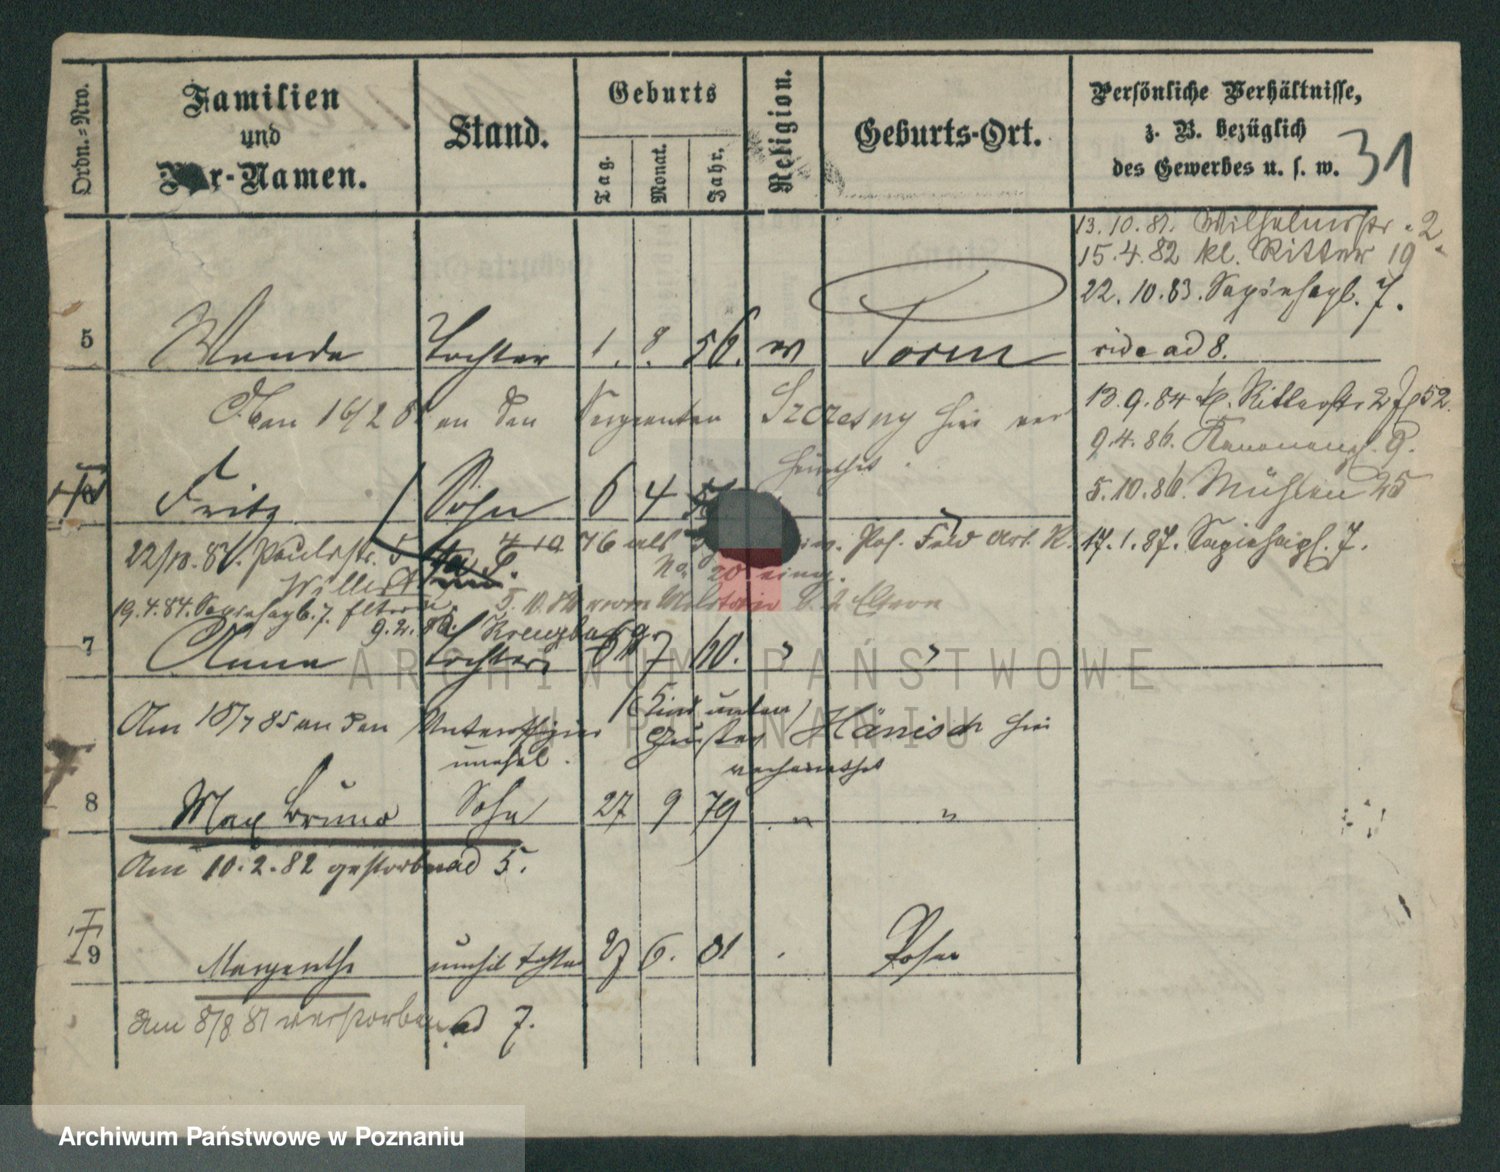 Ordn.=Nro.
Familien
und
Vor-Namen.
Stand.
Geburts
Tag.
Monat.
Jahr.
Religion.
Geburts-Ort.
Persönliche Verhältnisse,
z. B. bezüglich
des Gewerbes u. s. w.
31
13.10.81. Wilhelmstr. 2.
15.4.82 kl. Ritter 19
22.10.83. Sapiehapl. 7.
5 Wanda Tochter 1. 8. 56. w Posen
vide ad 8.
Eben 16/2 8 an den Sergeanten Szczesny hier ver
heirathet.
13.9.84 kl. Ritterstr 2
9.4.86. Kanonenpl. 9.
5.10.86. Mühlen 25
6 Fritz Sohn 6 4
4 10 76 als Pos. Feld Art. R.
17.1.87. Sapiehapl. 7.
22/10.81. Paulistr. 5
No 20 eing.
19.4.84. Sapiehapl. 7. Eltern
5.10.80 vom Militair
9.2. Kreuzburg.
7 Anna Tochter 6 7 60. " "
Am 18/7 85 an den Unteroffizier Gustav Hänisch hier
verheirathet
(Kind unten)
unehel.
8 Max Bruno Sohn 27 9 79 " "
Am 10.2.82 gestorben ad 5.
9 Margarethe unehel Tochter 27 6. 81 . Posen
Am 8/8 81 verstorben ad 7.
ARCHIWUM PAŃSTWOWE
W POZNANIU
Archiwum Państwowe w Poznaniu